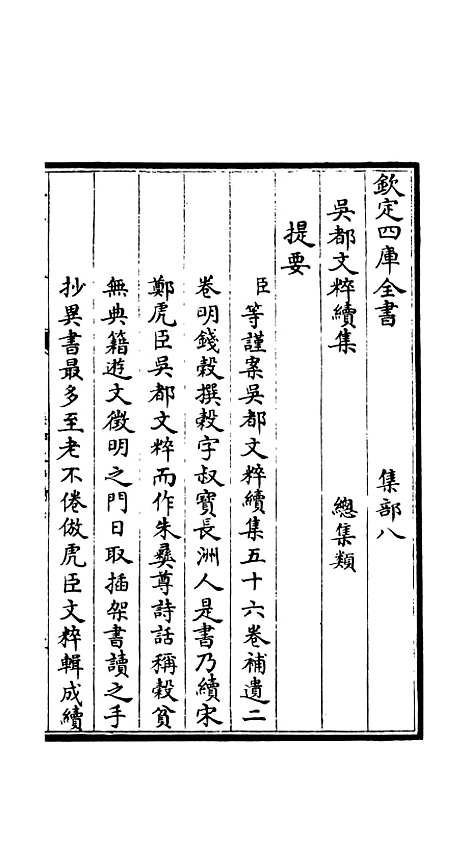 欽定四庫全書　集部八
吳都文粹續集　總集類
提要
臣等謹案吳都文粹續集五十六卷補遺二
卷明錢榖撰榖字叔寳長洲人是書乃續宋
鄭虎臣吳都文粹而作朱彞尊詩話稱榖貧
無典籍遊文徴明之門日取插架書讀之手
抄異書最多至老不倦倣虎臣文粹輯成續